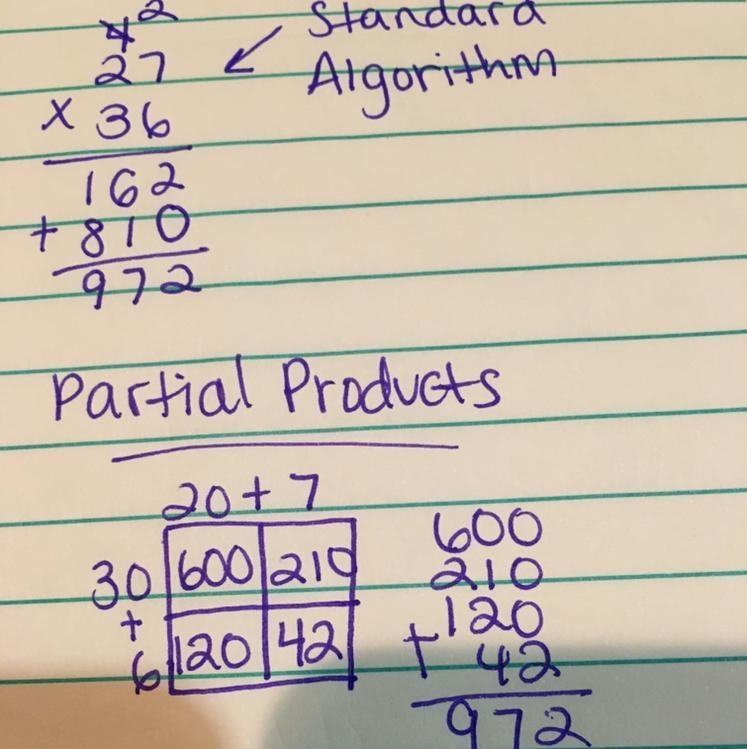 4 2
27
x 36
162
+ 810
972
Standard
Algorithm
Partial Products
20 + 7
30 600 210
+
6 120 42
600
210
120
+ 42
972